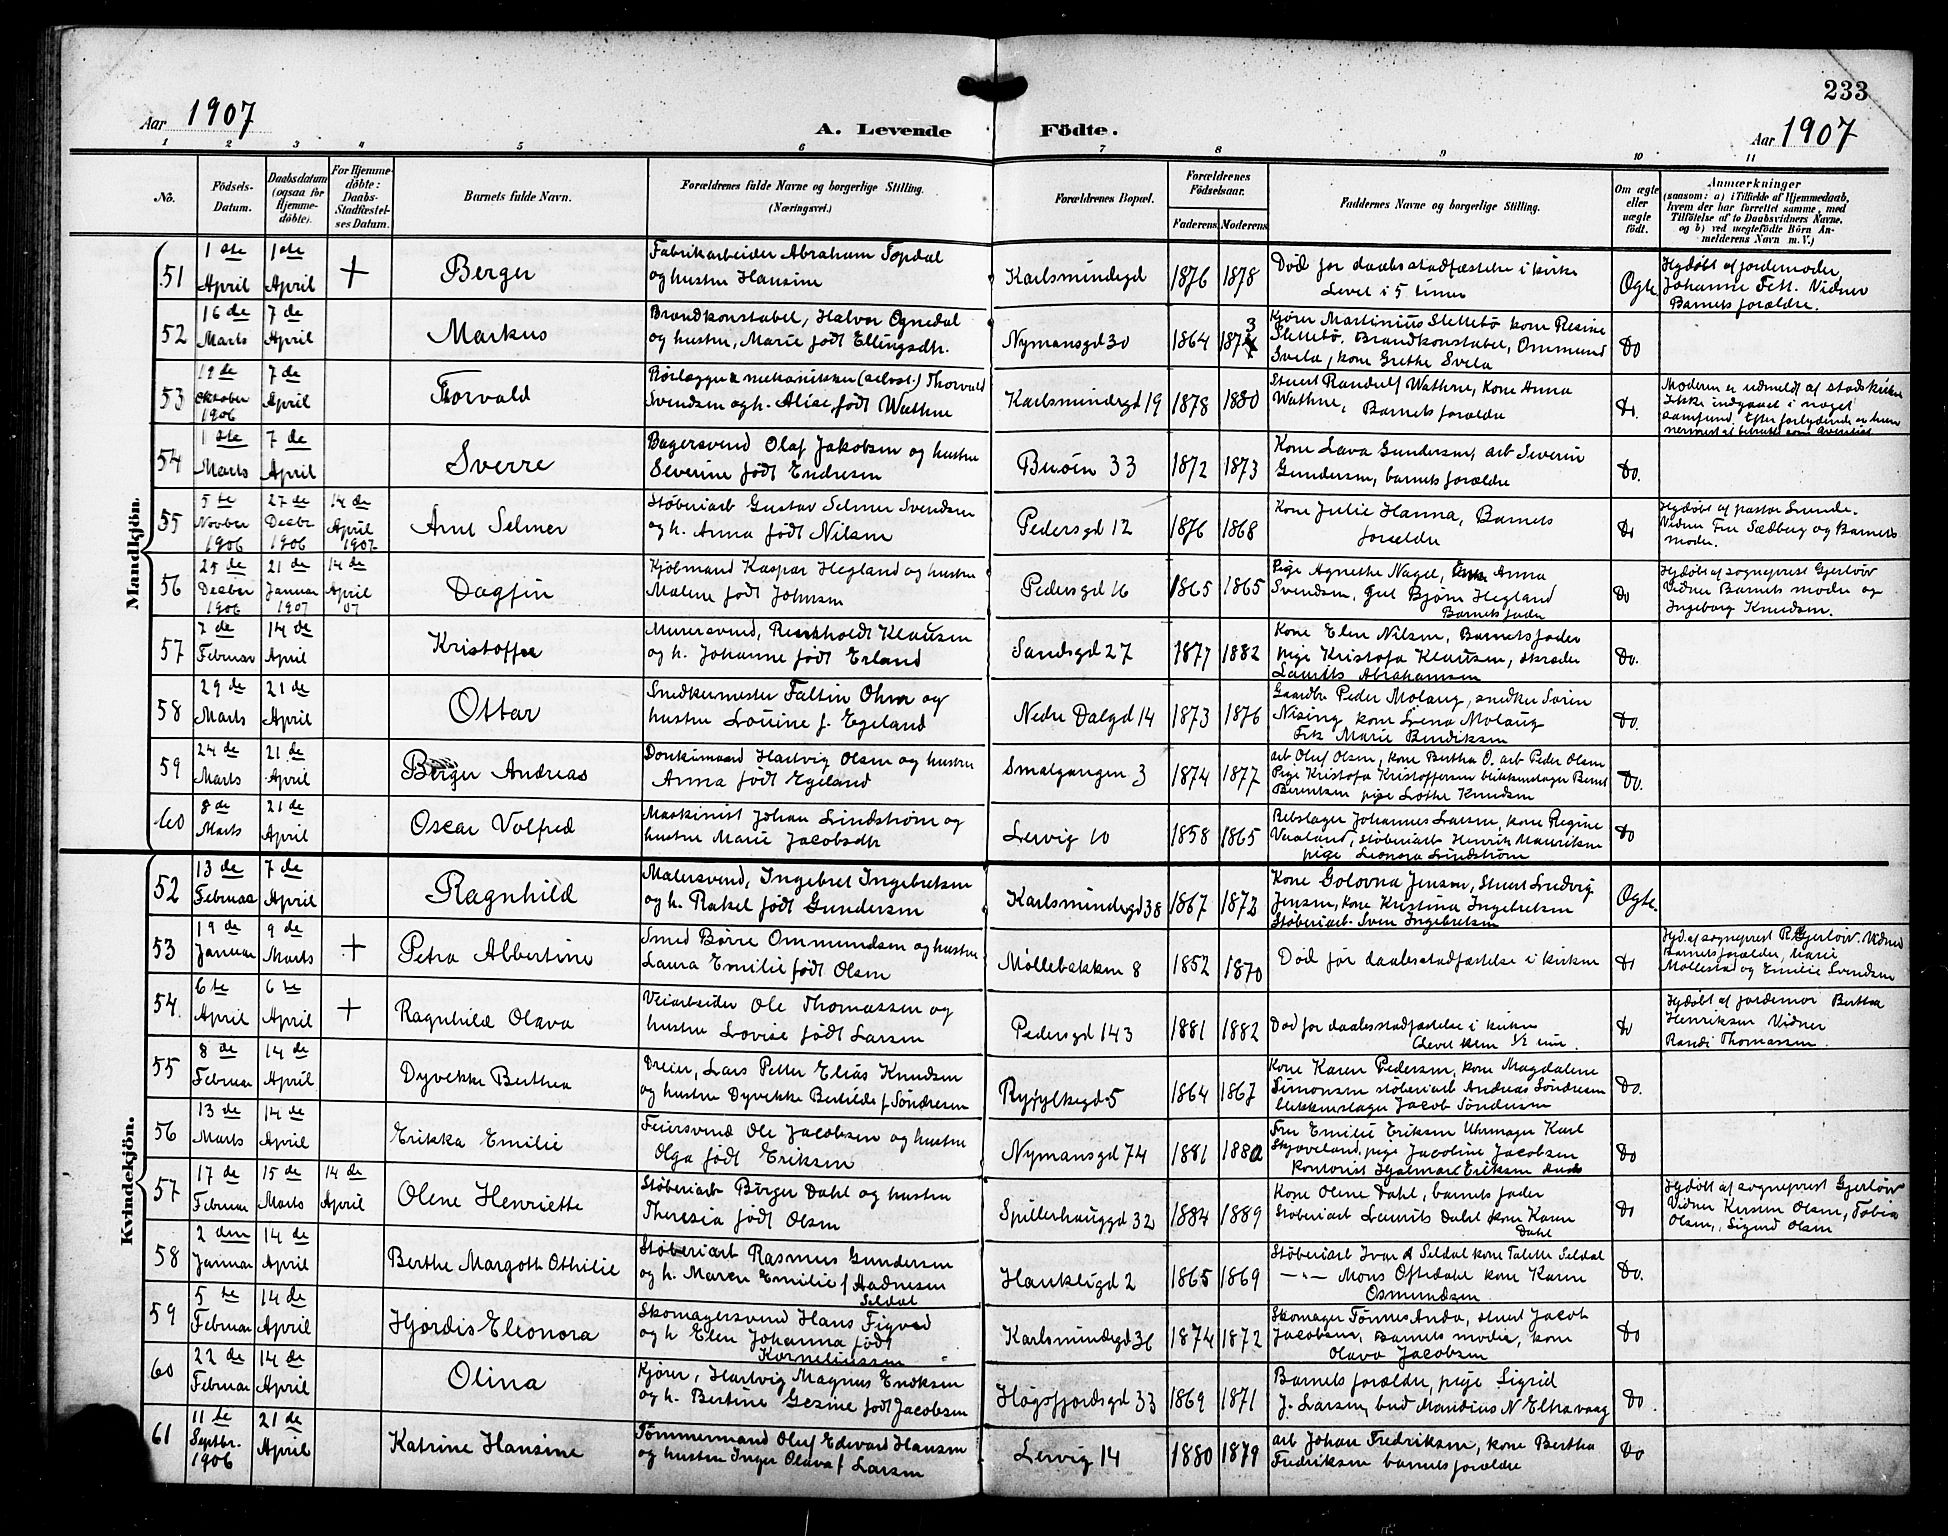 233
Aar 1907
A. Levende Födte.
Aar 1907
1 2 3 4 5 6 7 8 9 10 11
No.
Födsels-Datum.
Daabsdatum (ogsaa for Hjemme-döbte).
For Hjemme-döbte: Daabs-Stadfæstel-ses Datum.
Barnets fulde Navn.
Forældrenes fulde Navne og borgerlige Stilling. (Næringsvei.)
Forældrenes Bopæl.
Forældrenes Födselsaar.
Faderens Moderens
Faddernes Navne og borgerlige Stilling.
Om ægte eller uægte födt.
Anmærkninger
(saasom: a) i Tilfælde af Hjemmedaab,
hvem der har forrettet samme, med
Tilföielse af to Daabsvidners Navne,
og b) ved uægtefödte Börn An-
melderens Navn m. V.)
Mandkjön.
51 1ste April 1ste April + Berger
Fabrikarbeider Abraham Topdal
og hustru Hansine
Karlsmindegd 1876 1878
Död for daabsstadfæstelse i kirke
Levet i 5 timer
Ogte.
Hjdöbt af jordemoder
Johanne Fett. Vidner
Barnets forældre.
52 16de Marts 7de April Markus
Brandkonstabel, Halvor Ognedal
og hustru, Marie födt Ellingsdtr.
Nymansgd 30 1864 1873
Kjører Martinius Slettebö kone Resine
Slettebö, Brandkonstabel, Ommund
Svela, kone Grethe Svela
Do
53 12de Oktober 1906 7de April Torvald
Rörlægger & mekanikker (selvst.) Thorvald
Svendsen og h. Alise födt Wathne
Karlsmindegd 19 1878 1880
Stuert Randulf Wathne, Kone Anna
Wathne, Barnets forældre
Do.
Moderen er udmeldt af statskirken
Ikke indgaaet i noget
samfund. Efter forlydende er hun
nærmest at betrakte som Adventist
54 1ste Marts 7de April Sverre
Bagersvend Olaf Jakobsen og hustru
Severine födt Endresen
Buöen 33 1872 1873
Kone Lava Gundersen, arb Severin
Gundersen, barnets forældre
Do.
55 5te Novber 1906 27de Decbr 1906 14de April 1907 Arnt Selmer
Støberiarb Gustav Selmer Svendsen
og h. Anna födt Nilsen
Pedersgd 12 1876 1868
Kone Julie Hanna, Barnets
forældre
Do
Hjdöbt af pastor Lunde.
Vidner Fru Sædberg og Barnets
moder.
56 25de Decber 1906 21de Januar 1907 14de April 07 Dagfin
Kjöbmand Kaspar Hegland og hustru
Malene födt Johnsen
Pedersgd 16 1865 1865
Pige Agnethe Nagel, Enke Anna
Svendsen, Gut Bjørn Hegland
Barnets fader
Do
Hjdöbt af sogneprest Gjerlöv
Vidner Barnets moder og
Ingeborg Knudsen.
57 7de Februar 14de April Kristoffer
Murersvend, Reinholdt Klausen
og h. Johanne födt Erland
Sandsgd 27 1877 1882
Kone Elen Nilsen, Barnets fader
pige Kristofa Klausen, skræder
Laurits Abrahamsen
Do.
58 29de Marts 21de April Ottar
Snedkermester Faltin Ohra og
hustru Lovine f. Egeland
Nedre Dalgd 14 1873 1876
Gaardbr Peder Molaug, snedker Sören
Nising, kone Lena Molaug
Frk Marie Bendiksen
Do.
59 24de Marts 21de April Berger Andreas
Donkimand Hartvig Olsen og hustru
Anna födt Egeland
Smalgangen 3 1874 1877
arb. Oluf Olsen, kone Bertha O. arb Peder Olsen
Pige Kristofa Kristoffersen blikkenslager Bernt
Berentsen pige Lothe Knudsen
Do.
60 8de Marts 21de April Oscar Volfred
Maskinist Johan Lindström og
hustru Marie Jacobsdtr
Lervig 10 1858 1865
Rebslager Johannes Larsen, kone Regine
Vaaland, stöberiarb Henrik Mauritsen
pige Leonora Lindström
Do
Kvindekjön.
52 13de Februar 7de April Ragnhild
Malersvend, Ingebret Ingebretsen
og h. Rakel födt Gundersen
Karlsmindegd 38 1867 1872
Kone Golovna Jensen, Stuert Ludvig
Jensen, kone Kristina Ingebretsen
Stöberiarb. Sven Ingebretsen
Ogte.
53 19de Januar 9de Marts + Petra Albertine
Smed Börre Ommundsen og hustru
Laura Emilie födt Olsen
Möllebakken 8 1852 1870
Död för daabsstadfæstelse i kirken
Do
Hjd. af sogneprest R Gjerlöv. Vidner
Barnets forældre, Marie
Möllestad og Emilie Svendsen
54. 6te April 6te April + Ragnhild Olava
Veiarbeider Ole Thomassen og
hustru Lovise födt Larsen
Pedersgd 143 1881 1882
Död for daabsstadfæstelse i kirken
(Levet kun 1/2 time.
Do
Hjdöbt af jordemor Bertha
Henriksen Vidner
Randi Thomassen
55 8de Februar 14de April Dyvekke Berthea
Dreier, Lars Petter Elias Knudsen
og hustru Dyvekke Bertilde f Söndresen
Ryfylkegd 5 1864 1867
Kone Karen Pedersen, kone Magdalene
Simonsen stöberiarb Andreas Söndresen
blikkenslager Jacob Söndresen
Do.
56 13de Marts 14de April Erikka Emilie
Feiersvend Ole Jacobsen og hustru
Olga födt Eriksen
Nymansgd 74 1881 1880
Fru Emilie Eriksen Uhrmager Karl
Skjæveland, pige Jacobine Jacobsen
Kontorist Hjalmar Eriksen
Do
57 17de Februar 15de Marts 14de April Olene Henriette
Stöberiarb Birger Dahl og hustru
Theresia födt Olsen
Spilderhauggd 32 1884 1889
Kone Olene Dahl, barnets fader
Stöberiarb Laurits Dahl kone Karen
Dahl
Do
Hjdöbt af sogneprest Gjerlöv
Vidner Kirsten Olsen, Tobia
Olsen, Sigurd Olsen
58 2den Januar 14de April Berthe Margoth Othilie
Stöberiarb Rasmus Gundersen
og h. Maren Emilie f Aadnesen
Seldal
Haukeligd 2 1865 1869
Stöberiarb Ivar A Seldal kone Talette Seldal
—„— Mons Oftedahl kone Karen
Osmundsen
Do.
59 5te Februar 14de April Hjördis Eleonora
Skomagersvend Hans Figved
og h Elen Johanna födt
Korneliussen
Karlsmindegd 36 1874 1872
Skomager Tönnes Anda, stuert Jacob
Jacobsen, Barnets moder, kone
Olava Jacobsen
Do
60 22de Februar 14de April Olina
Kjører, Hartvig Magnus Eriksen
og h. Bertine Gesine födt Jacobsen
Högsfjordsgd 33 1869 1871
Barnets forældre, pige Sigrid
J. Larsen, bud Mandius N Eltravaag
Do.
61 11te Septbr. 1906 21de April Katrine Hansine
Tömmermand Oluf Edevard Hansen
og hustru Inger Olava f Larsen
Lervig 14 1880 1879
arb Johan Fredriksen, kone Bertha
Fredriksen barnets forældre
Do